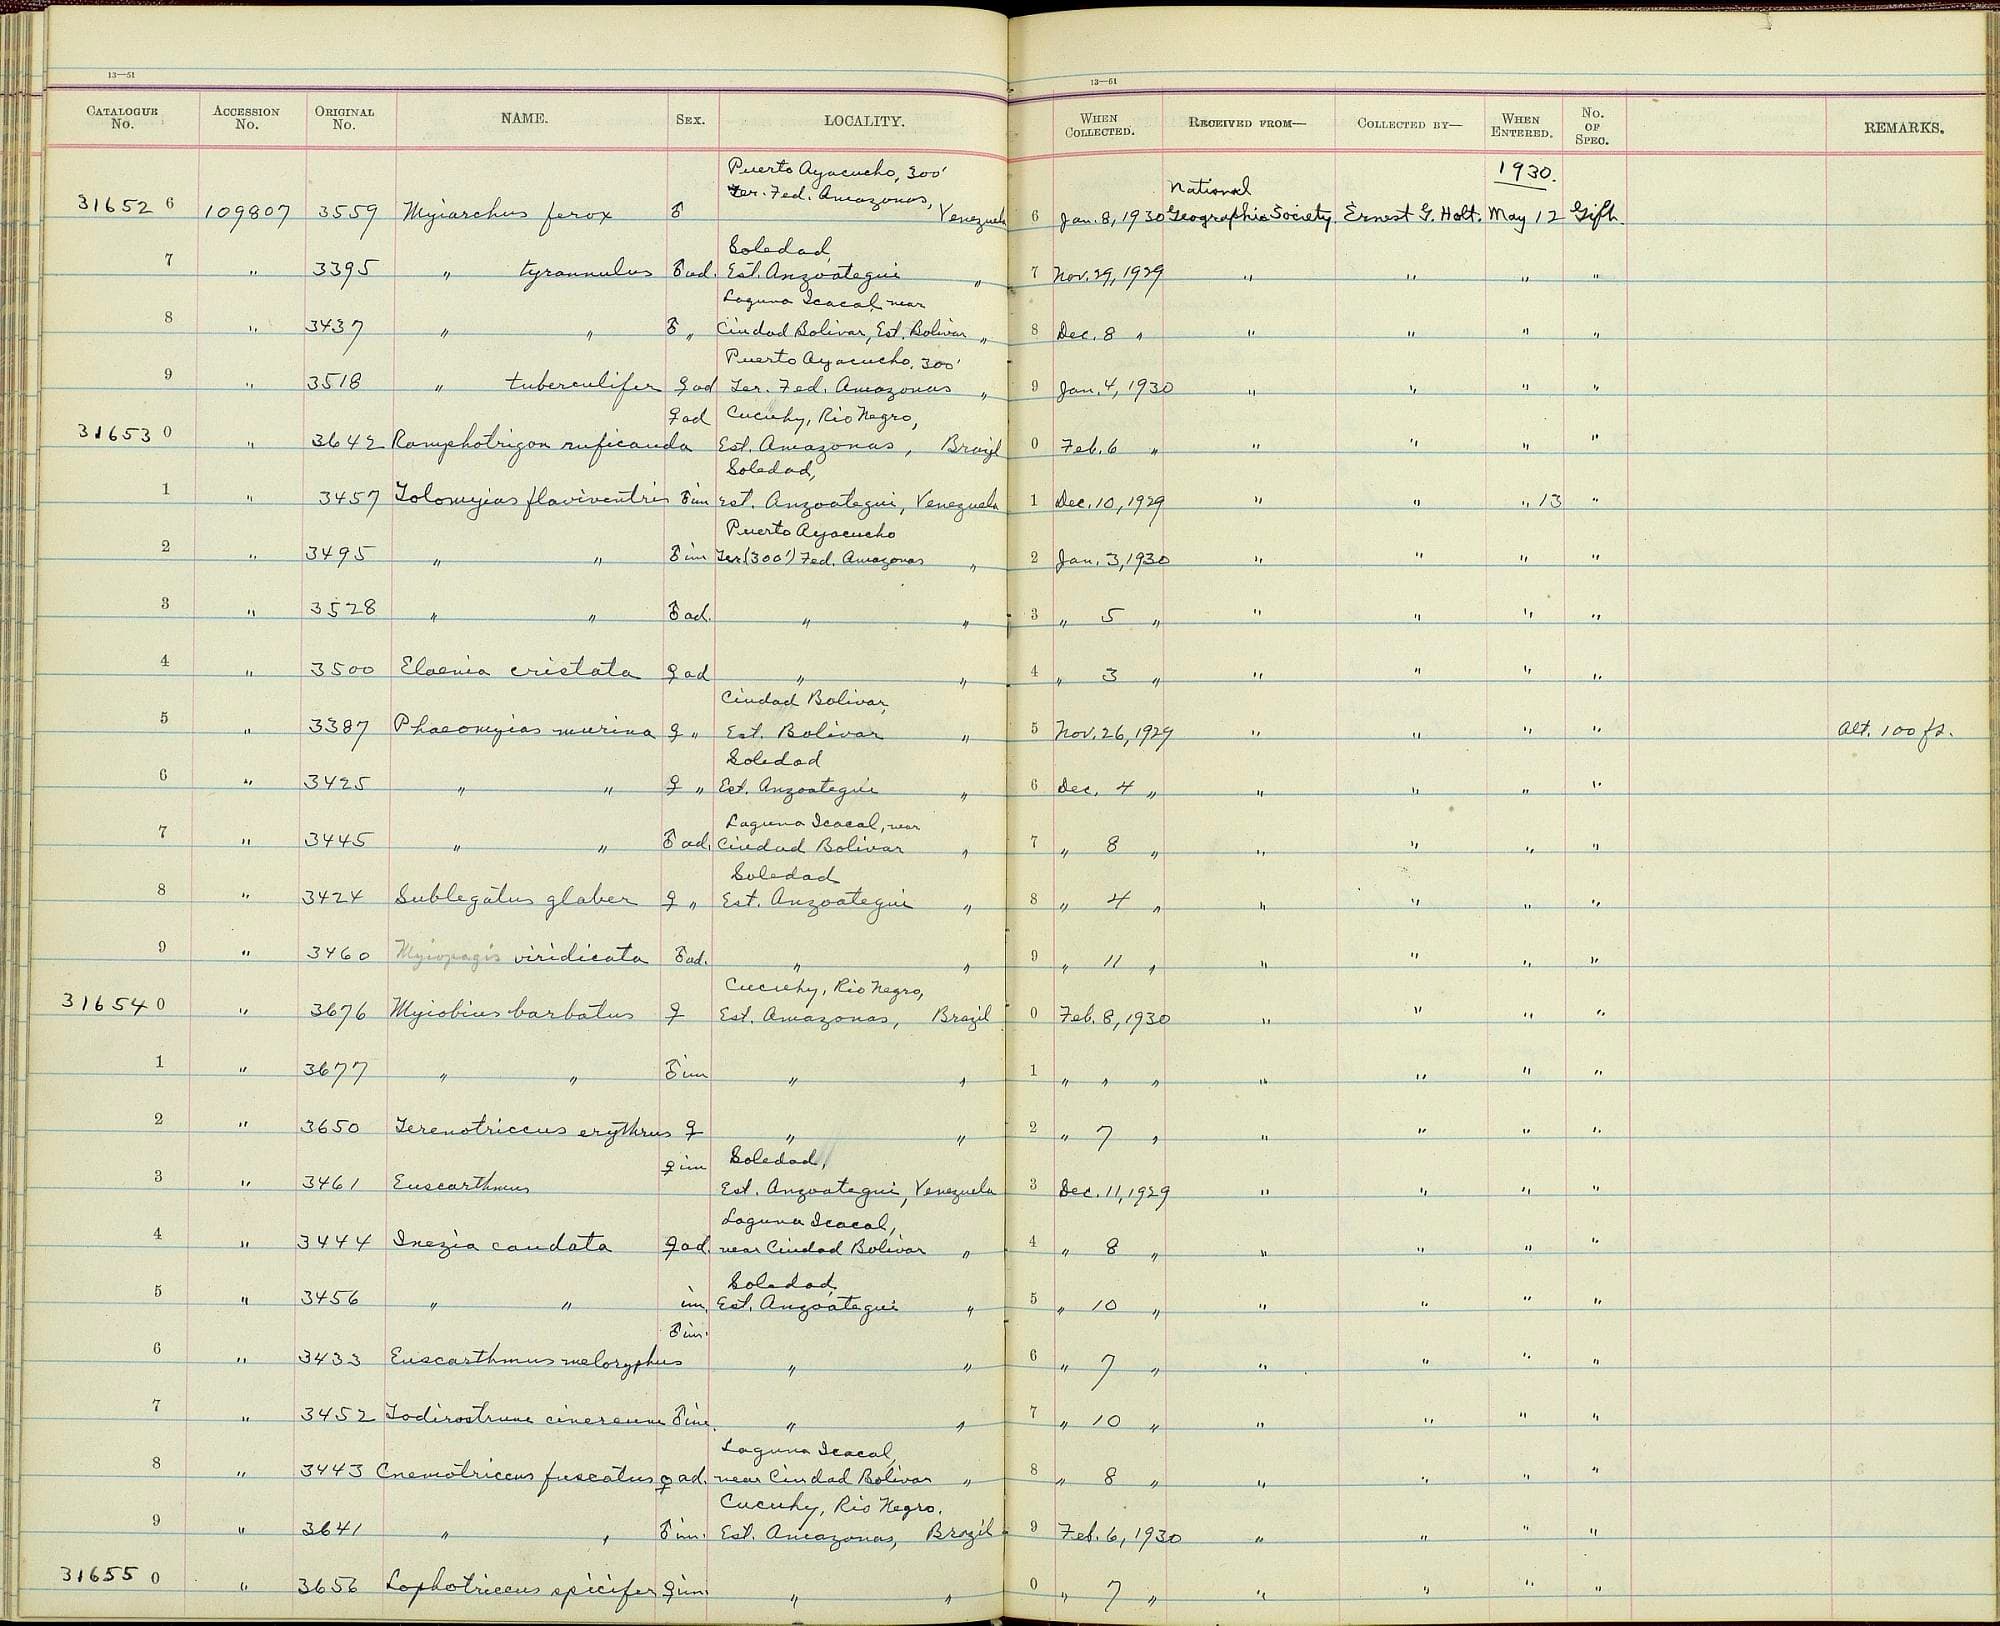 13—51
13—61
CATALOGUE No. ACCESSION No. ORIGINAL No. NAME. SEX. LOCALITY. WHEN COLLECTED. RECEIVED FROM— COLLECTED BY— WHEN ENTERED. No. OF SPEC. REMARKS.
1930.
Puerto Ayacucho, 300' National
Ter. Fed. Amazonas,
31652 6 109807 3559 Myiarchus ferox ♂ Venezuela 6 Jan. 8, 1930 Geographic Society Ernest G. Holt. May 12 Gift.
Soledad,
7 " 3395 " tyrannulus ♂ ad. Est. Anzoategui " 7 Nov. 29, 1929 " " " "
Laguna Icacal, near
8 " 3437 " " ♂ " Ciudad Bolivar, Est. Bolivar " 8 Dec. 8 " " " " "
Puerto Ayacucho, 300'
9 " 3518 " tuberculifer ♀ ad Ter. Fed. Amazonas " 9 Jan. 4, 1930 " " " "
♀ ad Cucuhy, Rio Negro,
31653 0 " 3642 Ramphotrigon ruficauda Est. Amazonas, Brazil 0 Feb. 6 " " " " "
Soledad,
1 " 3457 Tolomyias flaviventris ♂ im Est. Anzoategui, Venezuela 1 Dec. 10, 1929 " " " 13 "
Puerto Ayacucho
2 " 3495 " " ♂ im Ter. (300') Fed. Amazonas " 2 Jan. 3, 1930 " " " "
3 " 3528 " " ♂ ad. " " 3 " 5 " " " " "
4 " 3500 Elaenia cristata ♀ ad " " 4 " 3 " " " " "
Ciudad Bolivar,
5 " 3387 Phaeomyias murina ♀ " Est. Bolivar " 5 Nov. 26, 1929 " " " " Alt. 100 ft.
Soledad
6 " 3425 " " ♀ " Est. Anzoategui " 6 Dec. 4 " " " " "
Laguna Icacal, near
7 " 3445 " " ♂ ad. Ciudad Bolivar " 7 " 8 " " " " "
Soledad
8 " 3424 Sublegatus glaber ♀ " Est. Anzoategui " 8 " 4 " " " " "
9 " 3460 Myiopagis viridicata ♂ ad. " " 9 " 11 " " " " "
Cucuhy, Rio Negro,
31654 0 " 3676 Myiobius barbatus ♀ Est. Amazonas, Brazil 0 Feb. 8, 1930 " " " "
1 " 3677 " " ♂ im " " 1 " " " " " " "
2 " 3650 Terenotriccus erythrus ♀ " " 2 " 7 " " " " "
♀ im Soledad,
3 " 3461 Euscarthmus Est. Anzoategui, Venezuela 3 Dec. 11, 1929 " " " "
Laguna Icacal,
4 " 3444 Inezia caudata ♀ ad. near Ciudad Bolivar " 4 " 8 " " " " "
Soledad,
5 " 3456 " " im. Est. Anzoategui " 5 " 10 " " " " "
♂ im.
6 " 3433 Euscarthmus meloryphus " " 6 " 7 " " " " "
7 " 3452 Todirostrum cinereum ♂ im. " " 7 " 10 " " " " "
Laguna Icacal,
8 " 3443 Cnemotriccus fuscatus ♀ ad. near Ciudad Bolivar " 8 " 8 " " " " "
Cucuhy, Rio Negro.
9 " 3641 " " ♂ im. Est. Amazonas, Brazil 9 Feb. 6, 1930 " " " "
31655 0 " 3656 Lophotriccus spicifer ♀ im. " " 0 " 7 " " " " "